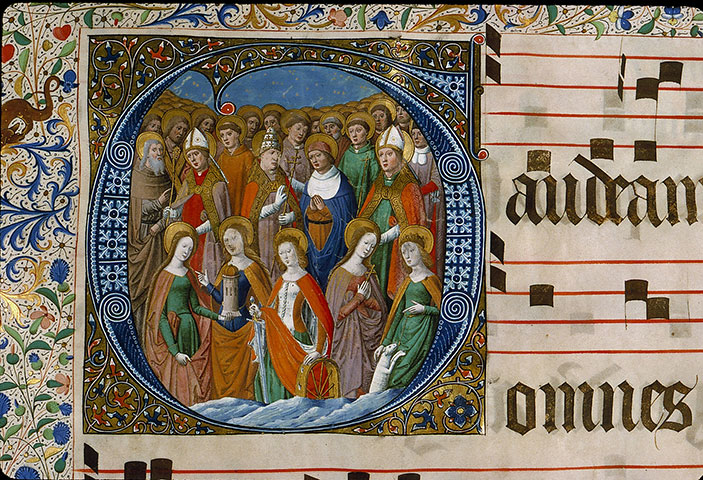 Gaudeam
omnes